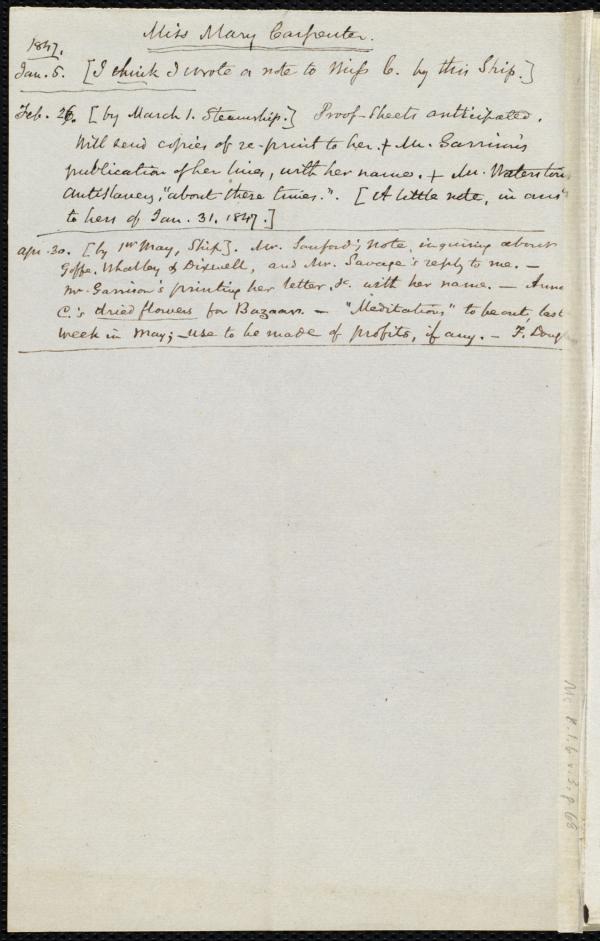 Miss Mary Carpenter.
1847.
Jan. 5. [I think I wrote a note to Miss C. by this Ship.]
Feb. 26. [by March 1. Steamship.] Proof-Sheets anticipated.
Will send copies of re-print to her. + Mr. Garrison's
publication of her lines, with her name. + Mr. Waterston
antislavery, "about these times." [A little note, in ans
to hers of Jan. 31. 1847.]
Apr. 30. [by 1st May, Ship]. Mr. Sanford's note, inquiring about
Goffe, Whalley & Dixwell, and Mr. Savage's reply to me. —
Mr. Garrison's printing her letter, &c. with her name. — Anne
C.'s dried flowers for Bazaar. — "Meditations" to be out, last
week in May; — use to be made of profits, if any. — F. Doug
Ms. B.1.6 v.3, p. 68